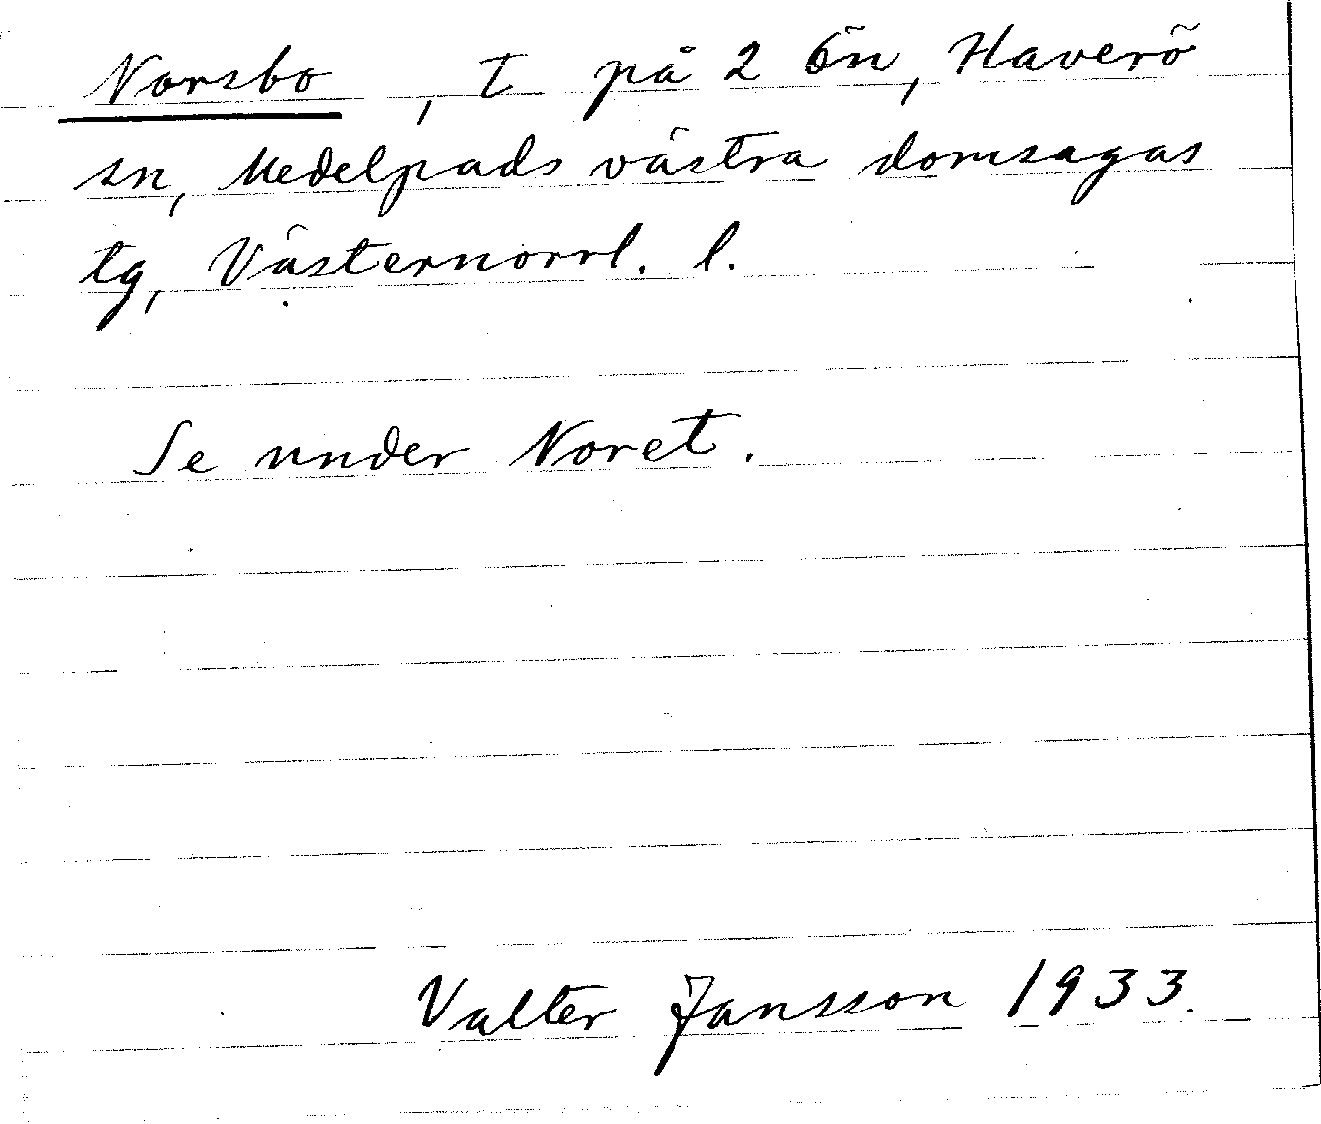 Norsbo, t på 2 Ön, Haverö
sn, Medelpads västra domsagas
tg, Västernorrl. l.
Se under Noret.
Valter Jansson 1933.